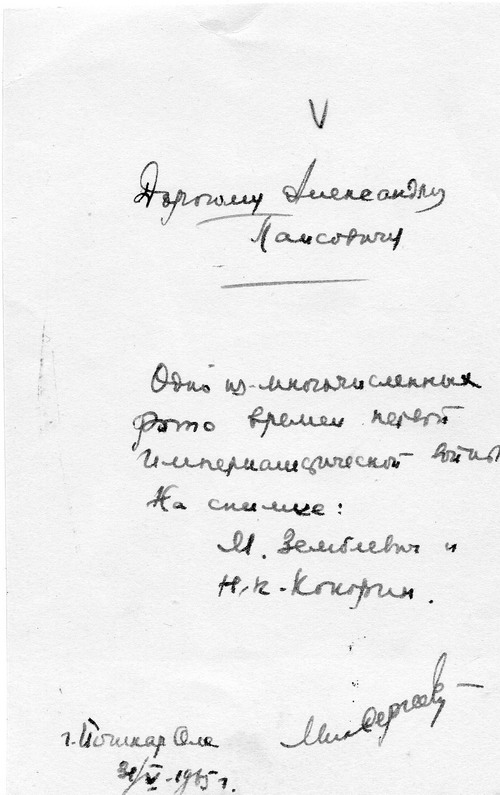 V
Дорогому Александру
Паисовичу
Одно из многочисленных
фото времен первой
империалистической войны
На снимке:
М. Землевич и
Н.К. Конорин.
г. Йошкар Ола
31/V-1965 г.